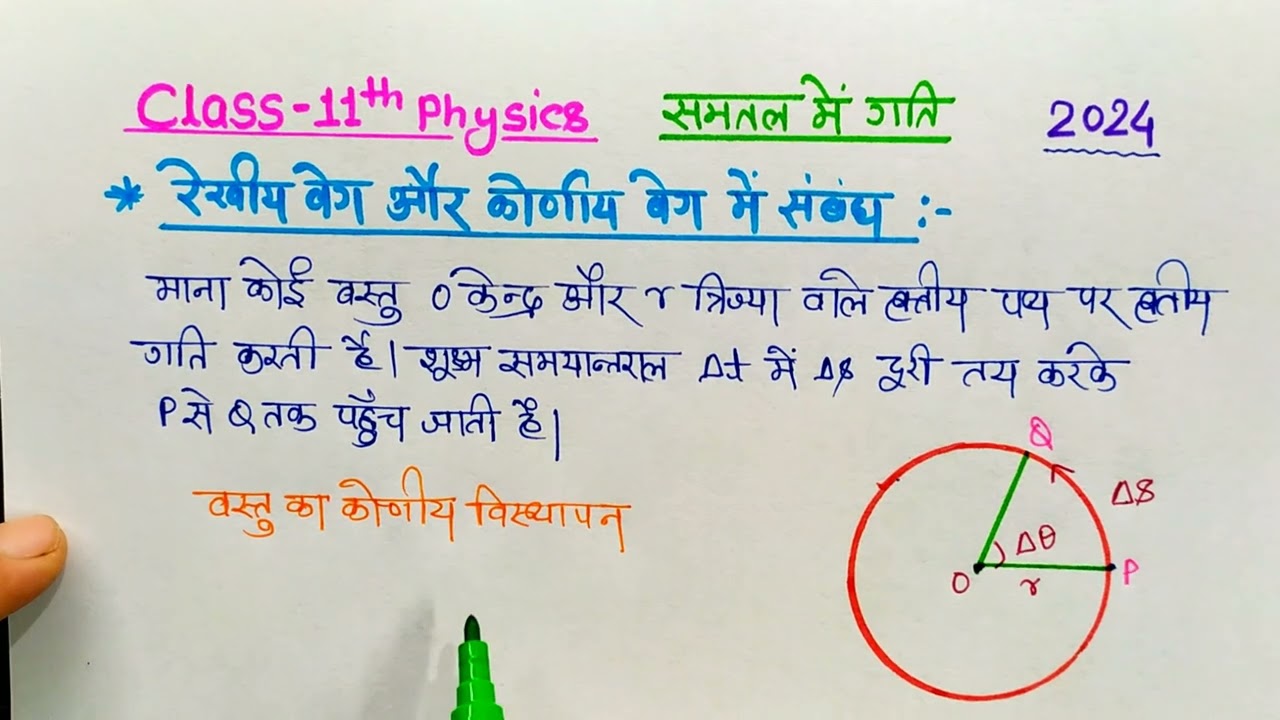 Class-11th Physics समतल में गति 2024
* रेखीय वेग और कोणीय वेग में संबंध :-
माना कोई वस्तु O केन्द्र और r त्रिज्या वाले वृत्तीय पथ पर वृत्तीय
गति करती है। सूक्ष्म समयान्तराल Δt में ΔS दूरी तय करके
P से Q तक पहुँच जाती है।
वस्तु का कोणीय विस्थापन
Q
ΔS
Δθ
O
r
P